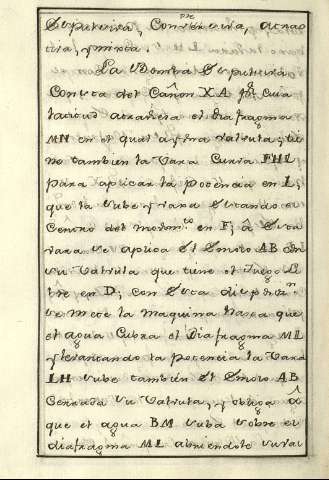 Sepulsiva, Conspirsiva, Atrac
tiva, y mixta.
La Bomba Repulsiva
Consta del Cañon X A por Cuia
latitud atraviesa el diafragma
MN en el qual ay una valvula, tie
ne tambien la Vara Curva FHL
para aplicar la potencia en L,
que la sube y vaxa estando el
Centro del movim.to en F; â esta
vara se aplica El Embolo AB con
su Valvula que tiene el Juego Li
bre en D; con esta dispozn.
se mete la maquina hasta que
el agua Cubra el Diafragma ML
y levantando la potencia la Vara
LH sube tambien El Embolo AB
Cerrada su Valvula, y obliga â
que el agua BM suba sobre el
diafragma ML abriendose su val